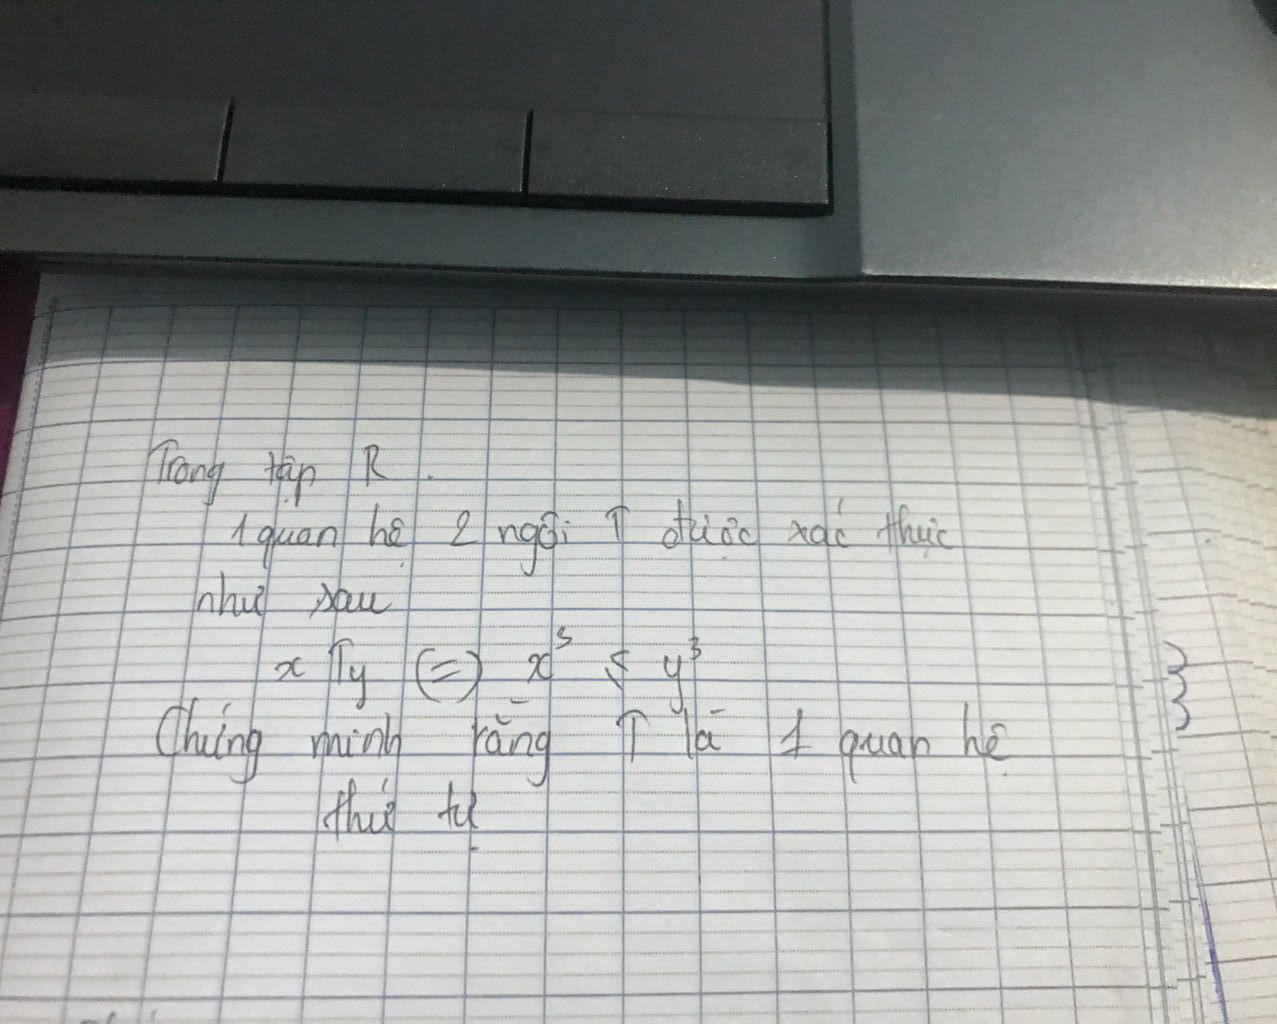 Trong tập R.
1 quan hệ 2 ngôi T được xác thực
như sau
x T y (=) x³ ≤ y³
Chứng minh rằng T là 1 quan hệ
thứ tự